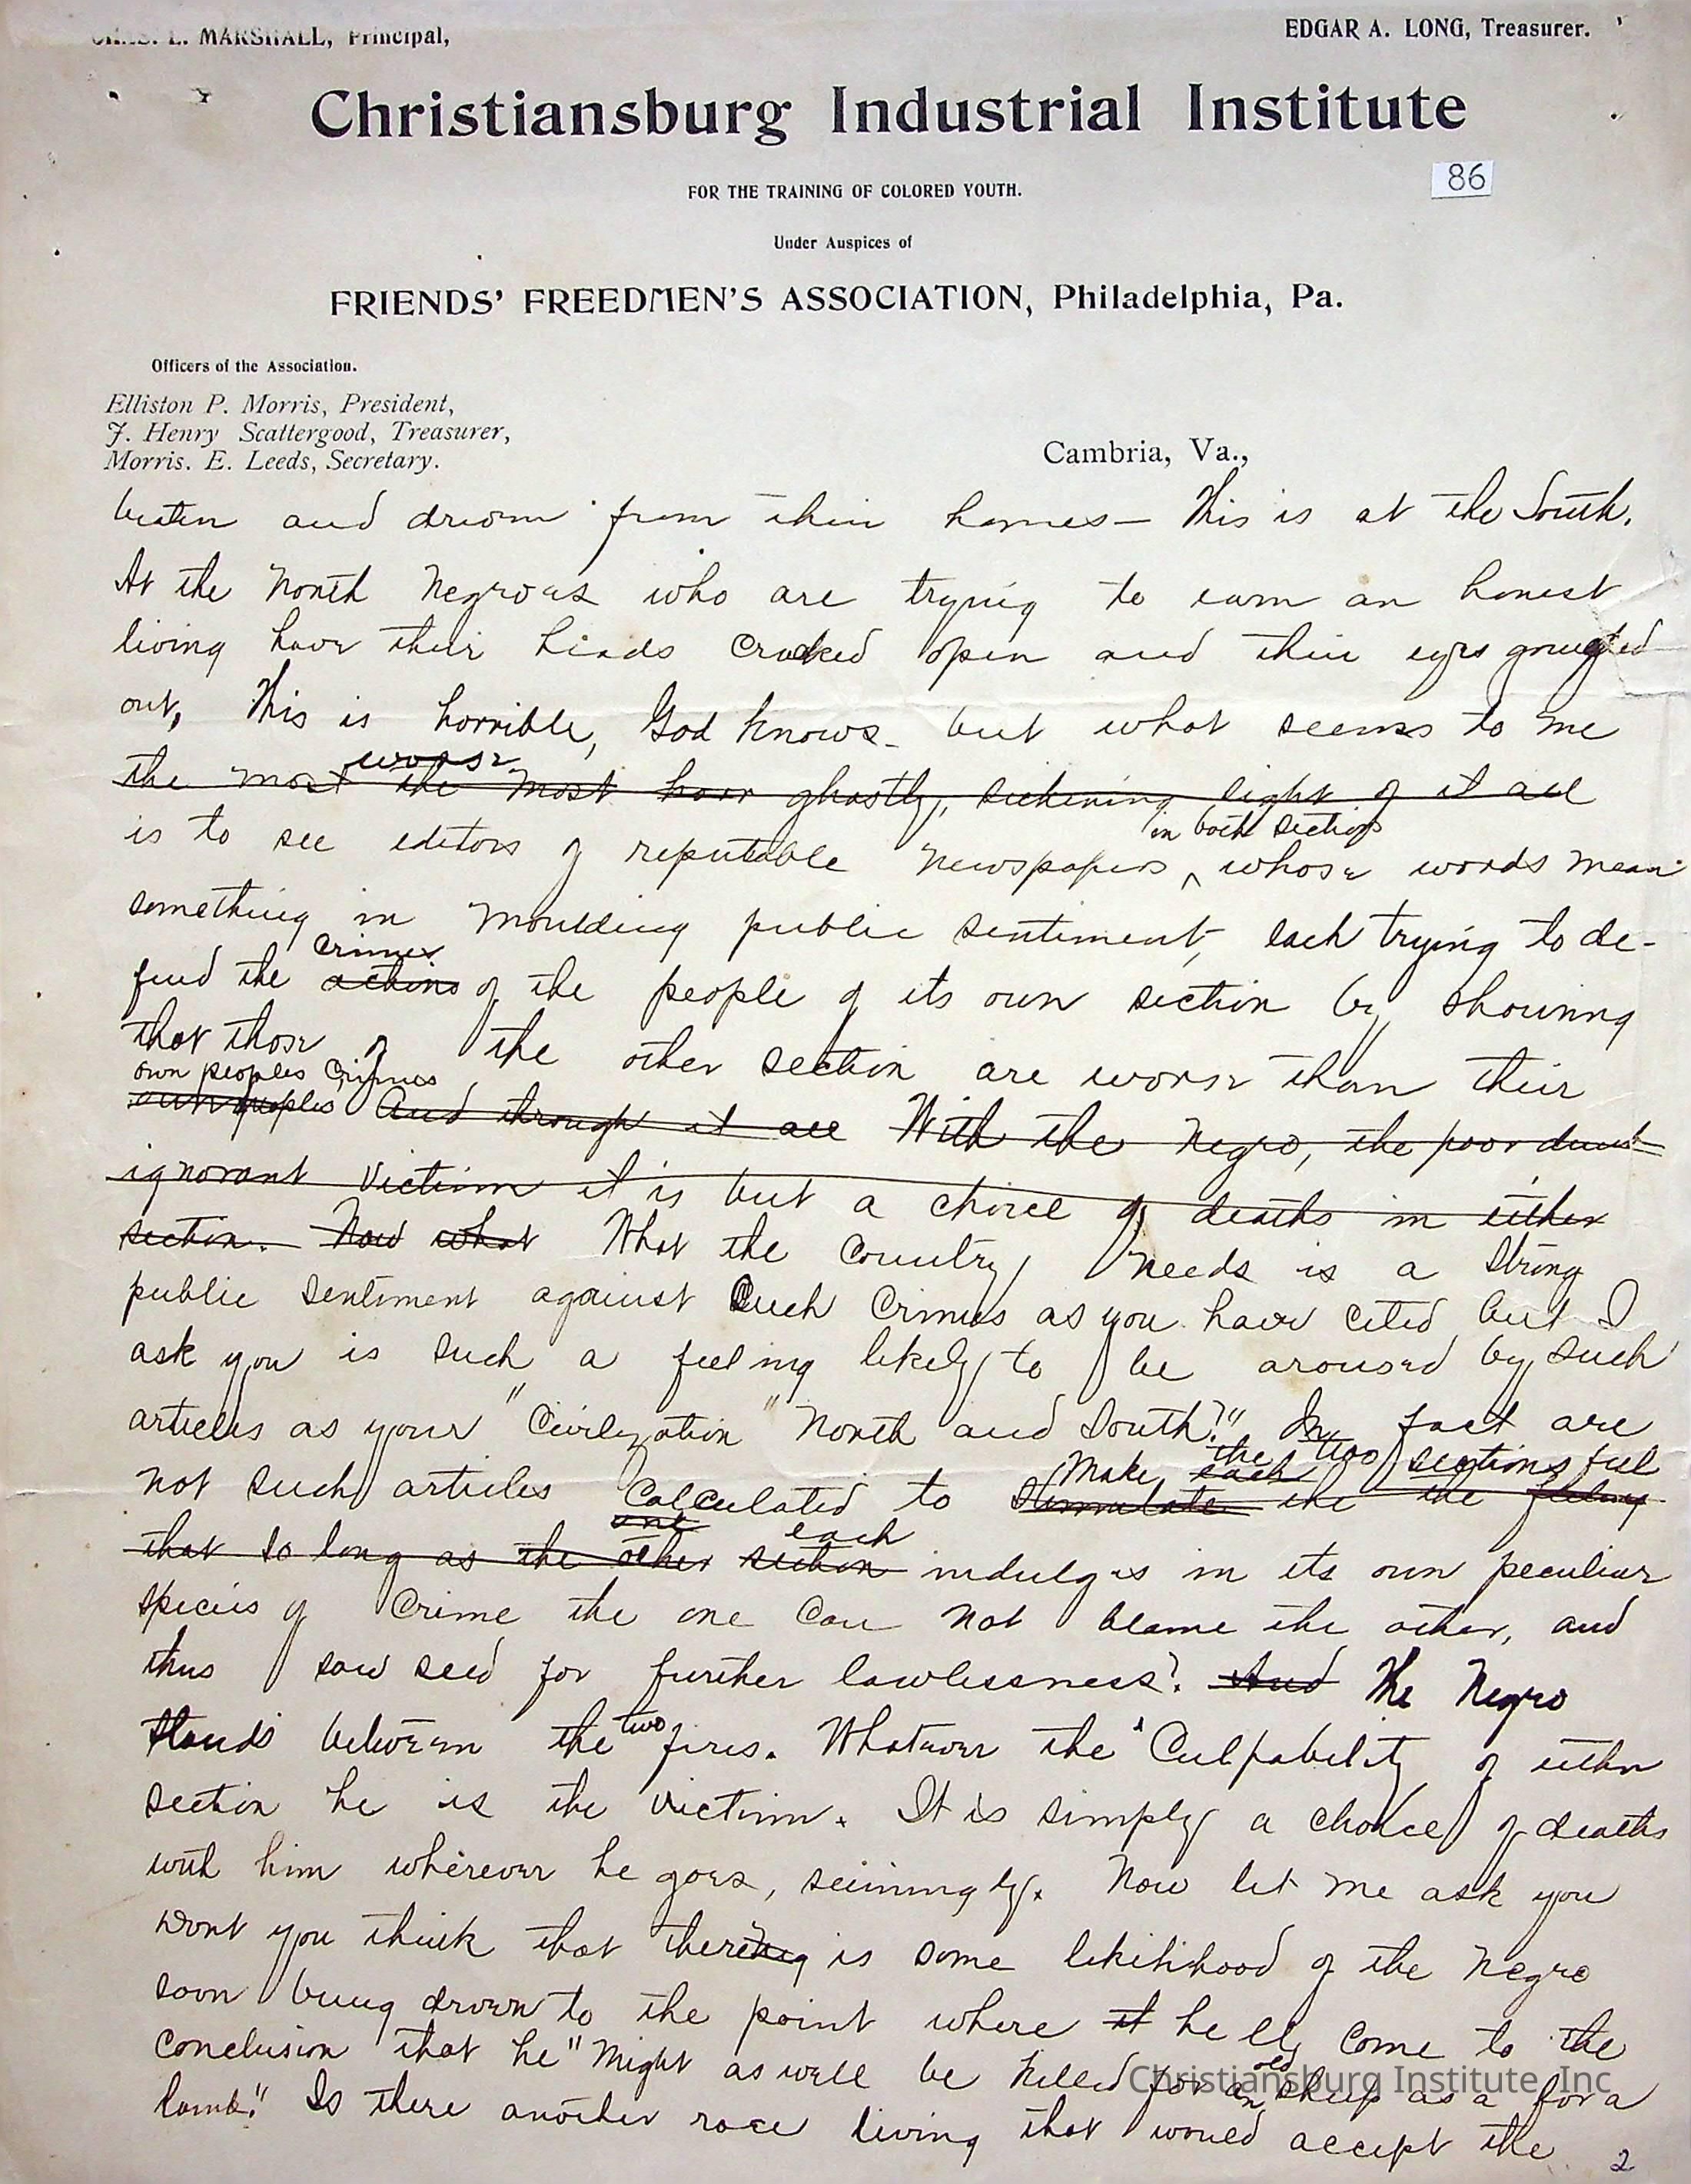 CHAS. L. MARSHALL, Principal,
EDGAR A. LONG, Treasurer.
Christiansburg Industrial Institute
86
FOR THE TRAINING OF COLORED YOUTH.
Under Auspices of
FRIENDS' FREEDMEN'S ASSOCIATION, Philadelphia, Pa.
Officers of the Association.
Elliston P. Morris, President,
J. Henry Scattergood, Treasurer,
Morris. E. Leeds, Secretary.
Cambria, Va.,
beaten and driven from their homes— This is at the South.
At the North Negroes who are trying to earn an honest
living have their heads cracked open and their eyes gouged
out, This is horrible, God knows- but what seems to me
worse
the most the most horr ghastly, sickening sight of it all
in both sections
is to see editors of reputable newspapers ^ whose words mean
something in moulding public sentiment, each trying to de-
crimes
fend the actions of the people of its own section by showing
that those of the other section are worse than their
own peoples crimes
own peoples And through it all With the Negro, the poor
ignorant victim it is but a choice of deaths in either
section. Now what What the country needs is a strong
public sentiment against such crimes as you have cited but I
ask you is such a feeling likely to be aroused by such
articles as your "Civilization" North and South?" In fact are
the two sections feel
Make each
not such articles calculated to stimulate the the feeling
one each
that so long as the other section indulges in its own peculiar
species of crime the one can not blame the other, and
thus sow seed for further lawlessness? And The Negro
two
stands between the fires. Whatever the culpability of either
section he is the victim. It is simply a choice of deaths
with him wherever he goes, seemingly. Now let me ask you
wont you think that there is some likelihood of the Negro
soon being driven to the point where it he ll come to the
conclusion that he "Might as well be killed for an sheep as a for a
old
lamb." Is there another race living that would accept the
2
Christiansburg Institute, Inc